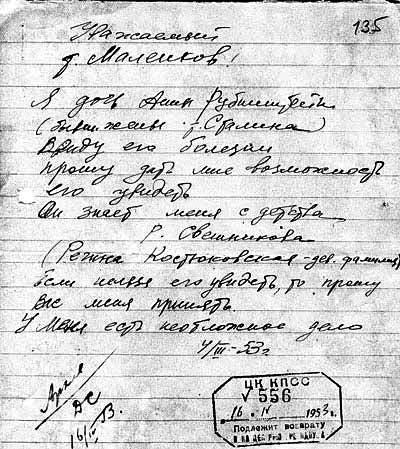 135
Уважаемый
т. Маленков!
Я дочь Анны Рубинштейн
(бывш. жены т. Сталина)
Ввиду его болезни
прошу дать мне возможность
его увидеть
Он знает меня с детства
Р. Свешникова
(Регина Костюковская – дев. фамилия)
Если нельзя его увидеть, то прошу
Вас меня принять.
У меня есть неотложное дело
4/III-53г.
Архив
ДС
16/IV 53.
ЦК КПСС
V 556
16. IV 1953г.
Подлежит возврату